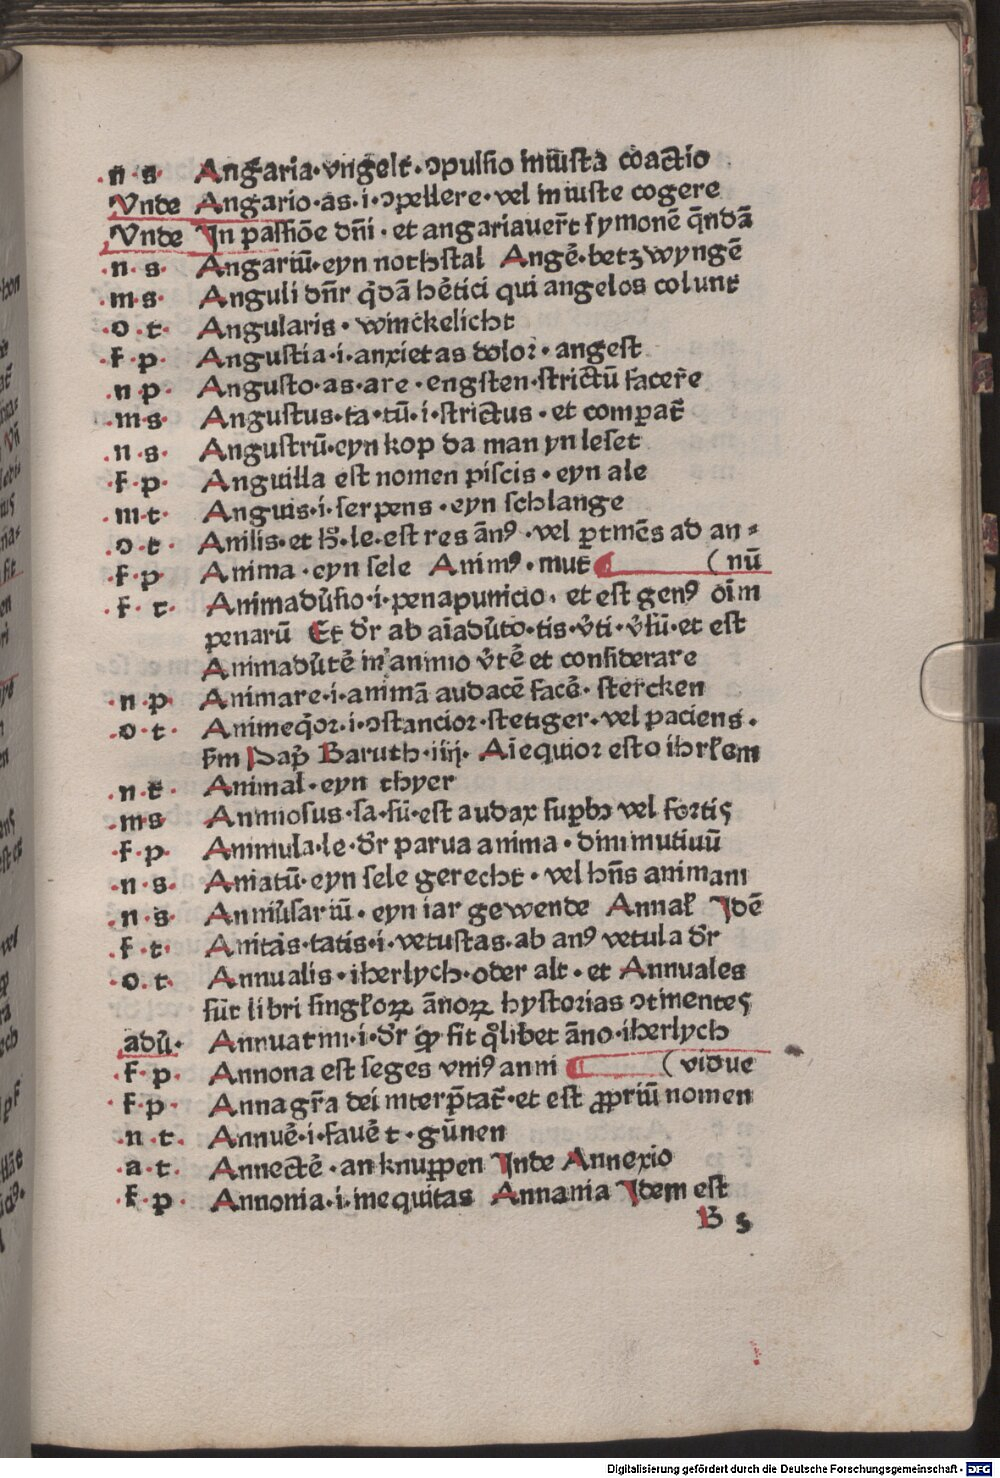 .n s. Angaria·vngelt·ↄpulsio iniusta coactio
Vnde Angario·as·i·ↄpellere·vel iniuste cogere
Vnde In passiōe dn̄i·et angariauer̄t symonē q̄ndā
·n·s· Angariū·eyn nothstal Angē·betzwyngē
·m·s· Anguli dn̄r q̇dā hētici qui angelos colunt
·o·t· Angularis·winckelicht
·f·p· Angustia·i·anxietas dolor·angest
·n p· Angusto·as·are·engsten·strictū facere
·m·s· Angustus·ta·tū·i·strictus·et comparat̄
·n·s· Angustrū·eyn kop da man yn leset
·f·p· Anguilla est nomen piscis·eyn ale
·m·t· Anguis·i·serpens·eyn schlange
·o·t· Anilis·et h̄·le·est res ānꝰ·vel ꝑtinēs ad an⸗
·f·p· Anima·eyn sele Animꝰ·mut (nū
·f·t· Animadu̇sio·i·pena punicio·et est genꝰ oīm
penarū Et dr̄ ab aīadu̇to·tis·v̇ti·v̇sū·et est
Animadu̇tē in animo v̇tē et considerare
·n·p· Animare·i·animā audacē facē·stercken
·o·t· Animeq̇or·i·ↄstancior·stetiger·vel paciens·
sm̄ Pap̄ Baruth·iiij· Aīequior esto ihrl̄em
·n·t· Animal·eyn thyer
·m s Animosus·sa·sū·est audax suꝑbꝰ vel fortis
·f·p· Animula·le·dr̄ parua anima·diminutiuū
·n·s· Aniatū·eyn sele gerecht·vel hn̄s animam
·n·s· Anniu̇sariū·eyn iar gewende Annal̄ Idē
·f·t· Anitas·tatis·i·vetustas·ab anꝰ vetula dr̄
·o·t· Annualis·iherlych·oder alt·et Annuales
sūt libri singl̄oꝝ ānoꝝ hystorias ↄtinentes
adu̇· Annuatim·i·dr̄ qꝫ fit q̇libet āno·iherlych
·f·p· Annona est seges vniꝰ anni (vidue
·f·p· Annagr̄a dei interp̄tat̄·et est ꝓpriū nomen
·n·t· Annuē·i·fauē t·gūnen
·a·t· Annectē·an knuppen Inde Annexio
·f·p· Annonia·i·inequitas Annania Idem est
B 5
Digitalisierung gefördert durch die Deutsche Forschungsgemeinschaft - DFG